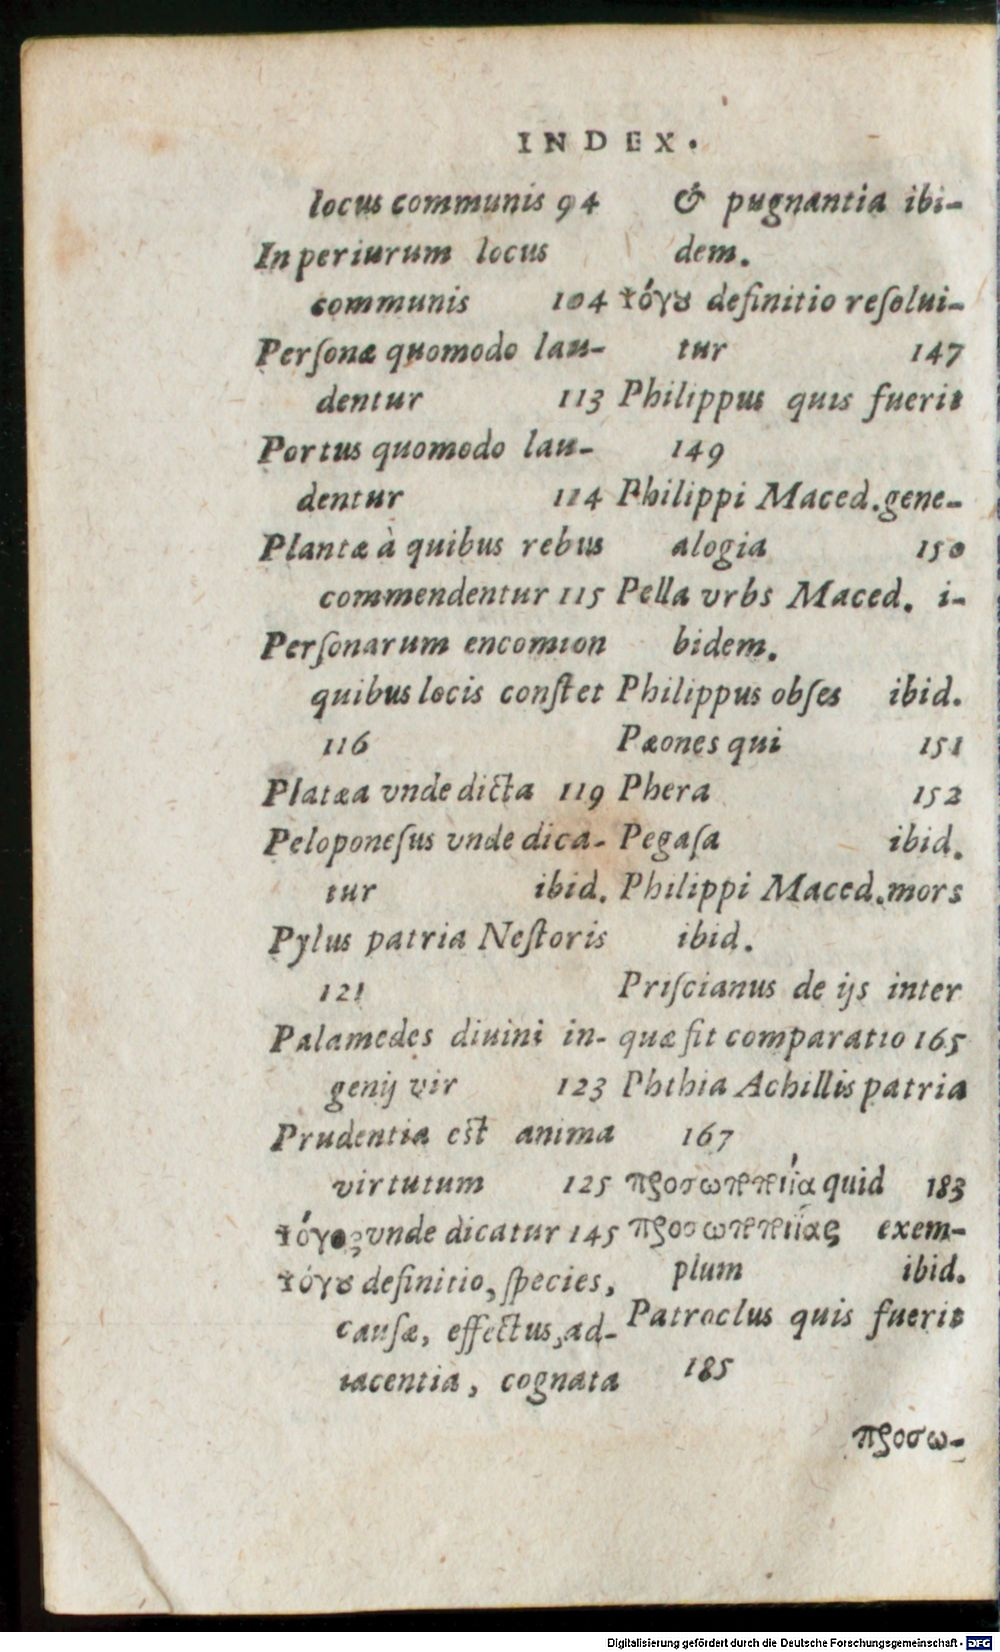 INDEX.
locus communis 94
In periurum locus
communis 104
Perſonæ quomodo lau-
dentur 113
Portus quomodo lau-
dentur 114
Plantæ à quibus rebus
commendentur 115
Perſonarum encomion
quibus locis conſtet
116
Platæa vnde dicta 119
Peloponeſus vnde dica-
tur ibid.
Pylus patria Neſtoris
121
Palamedes diuini in-
genij vir 123
Prudentia eſt anima
virtutum 125
ψόγος vnde dicatur 145
ψόγȣ definitio, ſpecies,
cauſæ, effectus, ad-
iacentia, cognata
& pugnantia ibi-
dem.
ψόγȣ definitio reſolui-
tur 147
Philippus quis fuerit
149
Philippi Maced. gene-
alogia 150
Pella vrbs Maced. i-
bidem.
Philippus obſes ibid.
Pæones qui 151
Phera 152
Pegaſa ibid.
Philippi Maced. mors
ibid.
Priſcianus de ijs inter
quæ fit comparatio 165
Phthia Achillis patria
167
προσωποποιΐα quid 183
προσωποποιΐας exem-
plum ibid.
Patroclus quis fuerit
185
προσω-
Digitalisierung gefördert durch die Deutsche Forschungsgemeinschaft - DFG